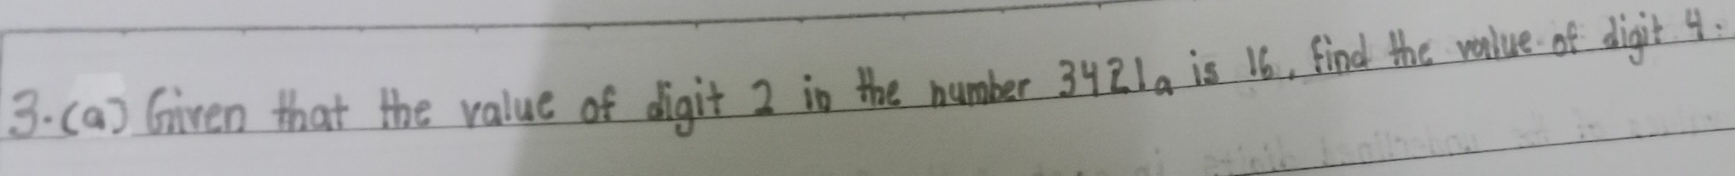 3. (a) Given that the value of digit 2 in the number 3421a is 16, find the value of digit 4.